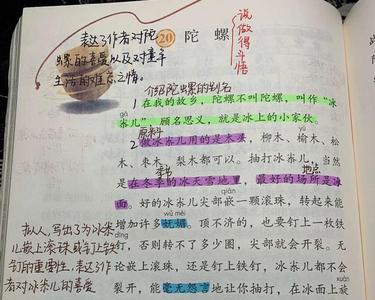 表达了作者对陀
螺的喜爱以及对童年
生活的难忘之情。
20 陀 螺
说
做
得
悟
介绍陀螺的别名
1 在我的故乡，陀螺不叫陀螺，叫作“冰
gá
尕儿”，顾名思义，就是冰上的小家伙。
原料
2 做冰尕儿用的是木头，柳木、榆木、松
木、枣木、梨木都可以。抽打冰尕儿，当然
季节 地点
是在冬季的冰天雪地里，最好的场所是冰
qiàn
面。好的冰尕儿尖部嵌一颗滚珠，转起来能
wǔ mèi
增加许多妩媚。顶不济的，也要钉上一枚铁
拟人，写出了为冰尕
儿嵌上滚珠或钉上铁
钉，否则转不了多少圈，尖部就会开裂。无
钉的重要性，表达了作
论嵌上滚珠，还是钉上铁钉，冰尕儿都不会
者对冰尕儿的喜爱
裂开，能毫无怨言地让你抽打，在冰面上旋